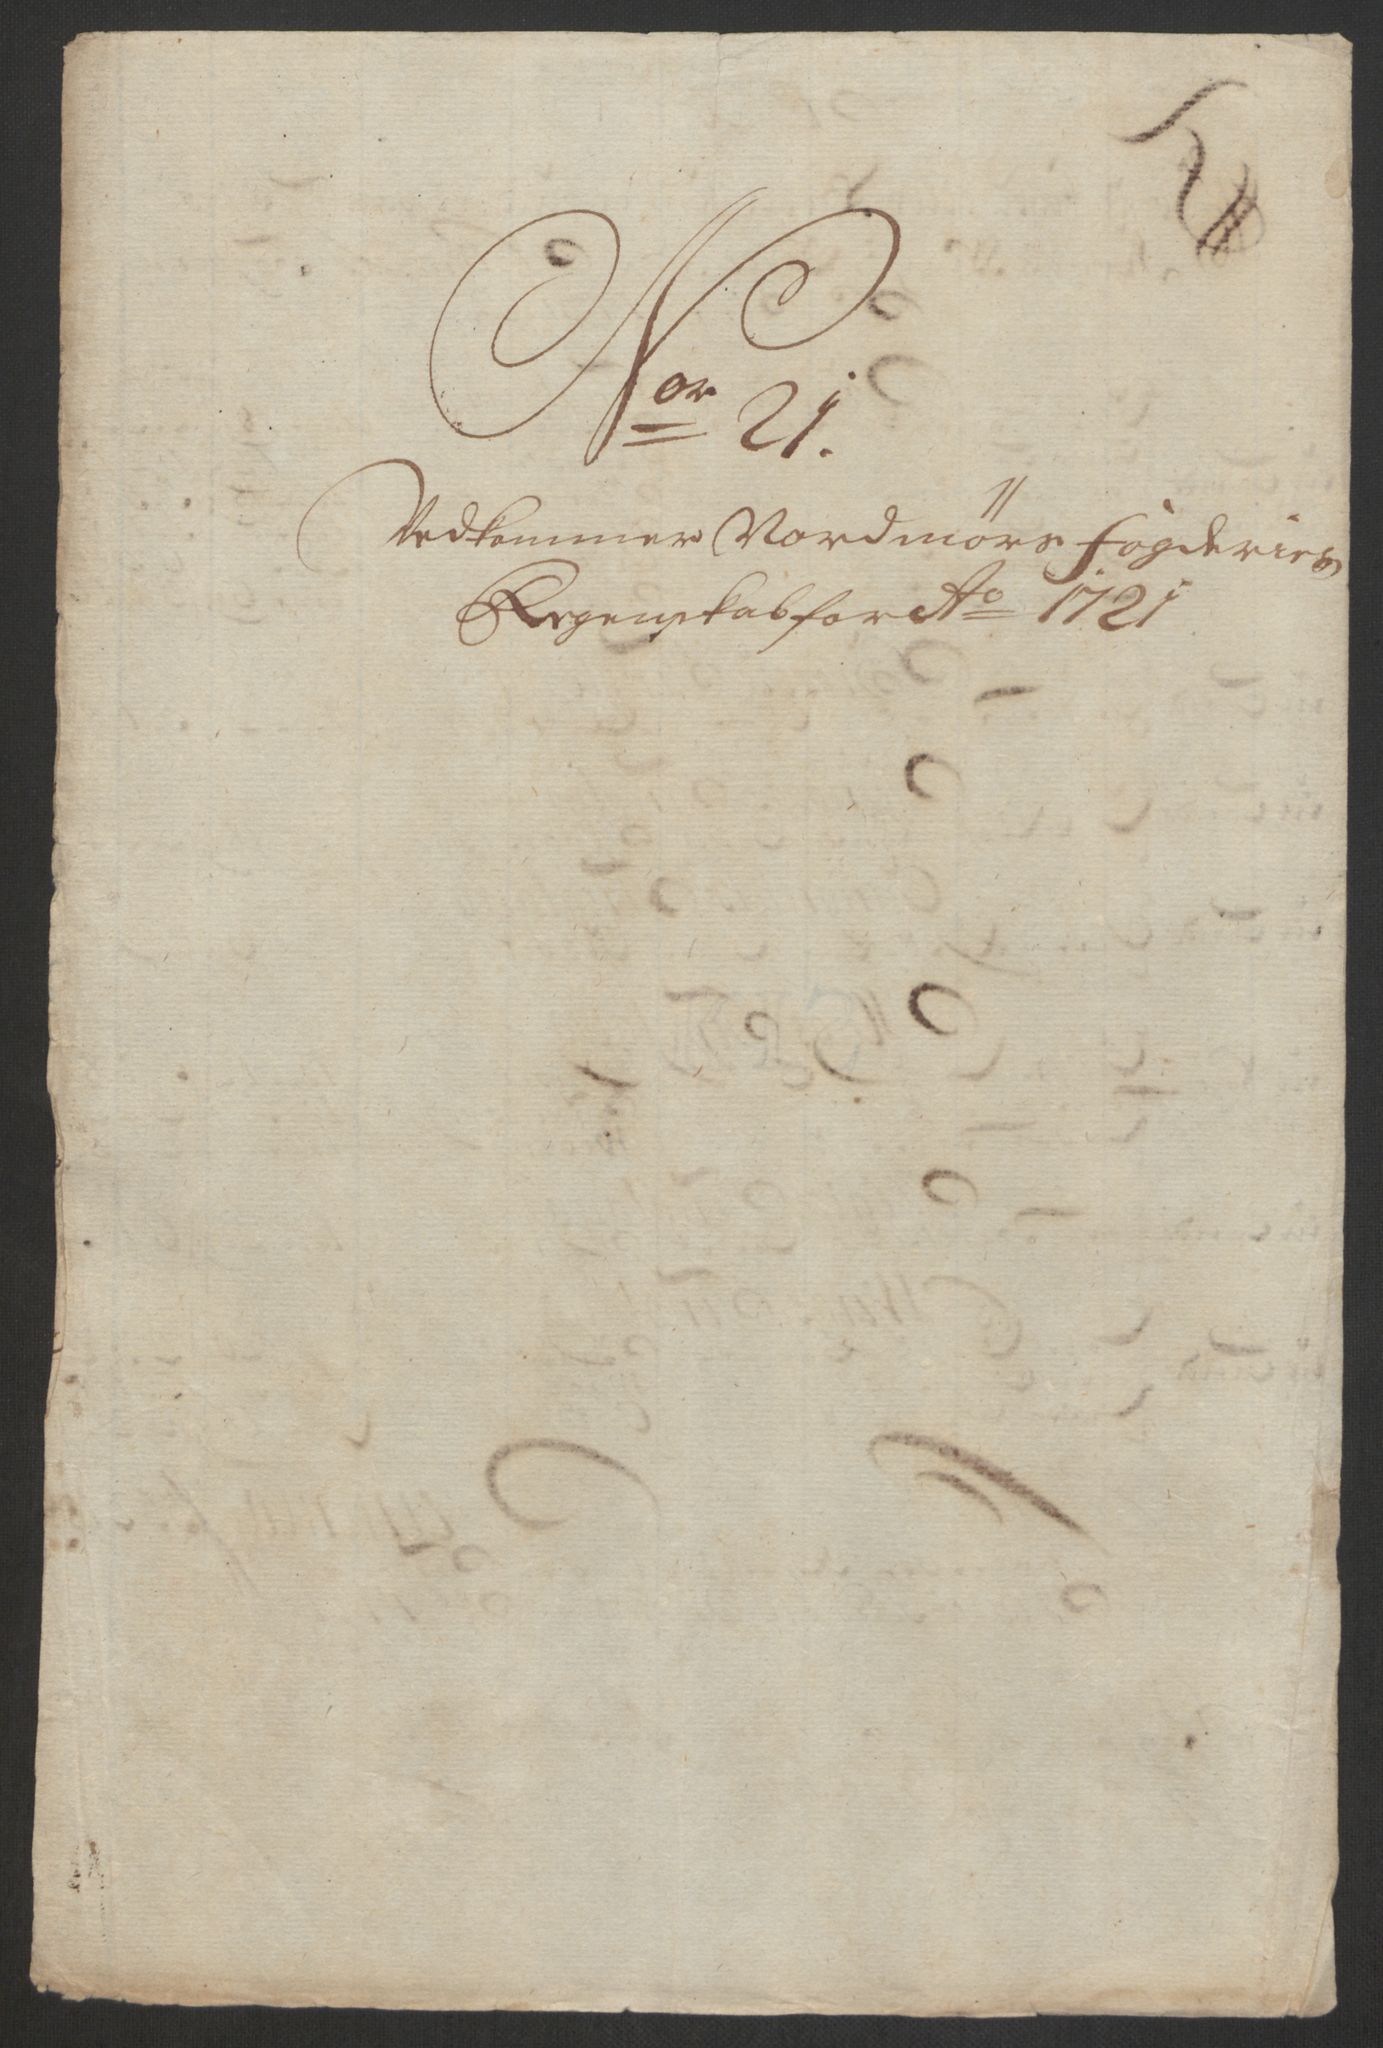 Nor 21.
Vedkommer Nordmörs fogderies
Regenskab for Ao 1721